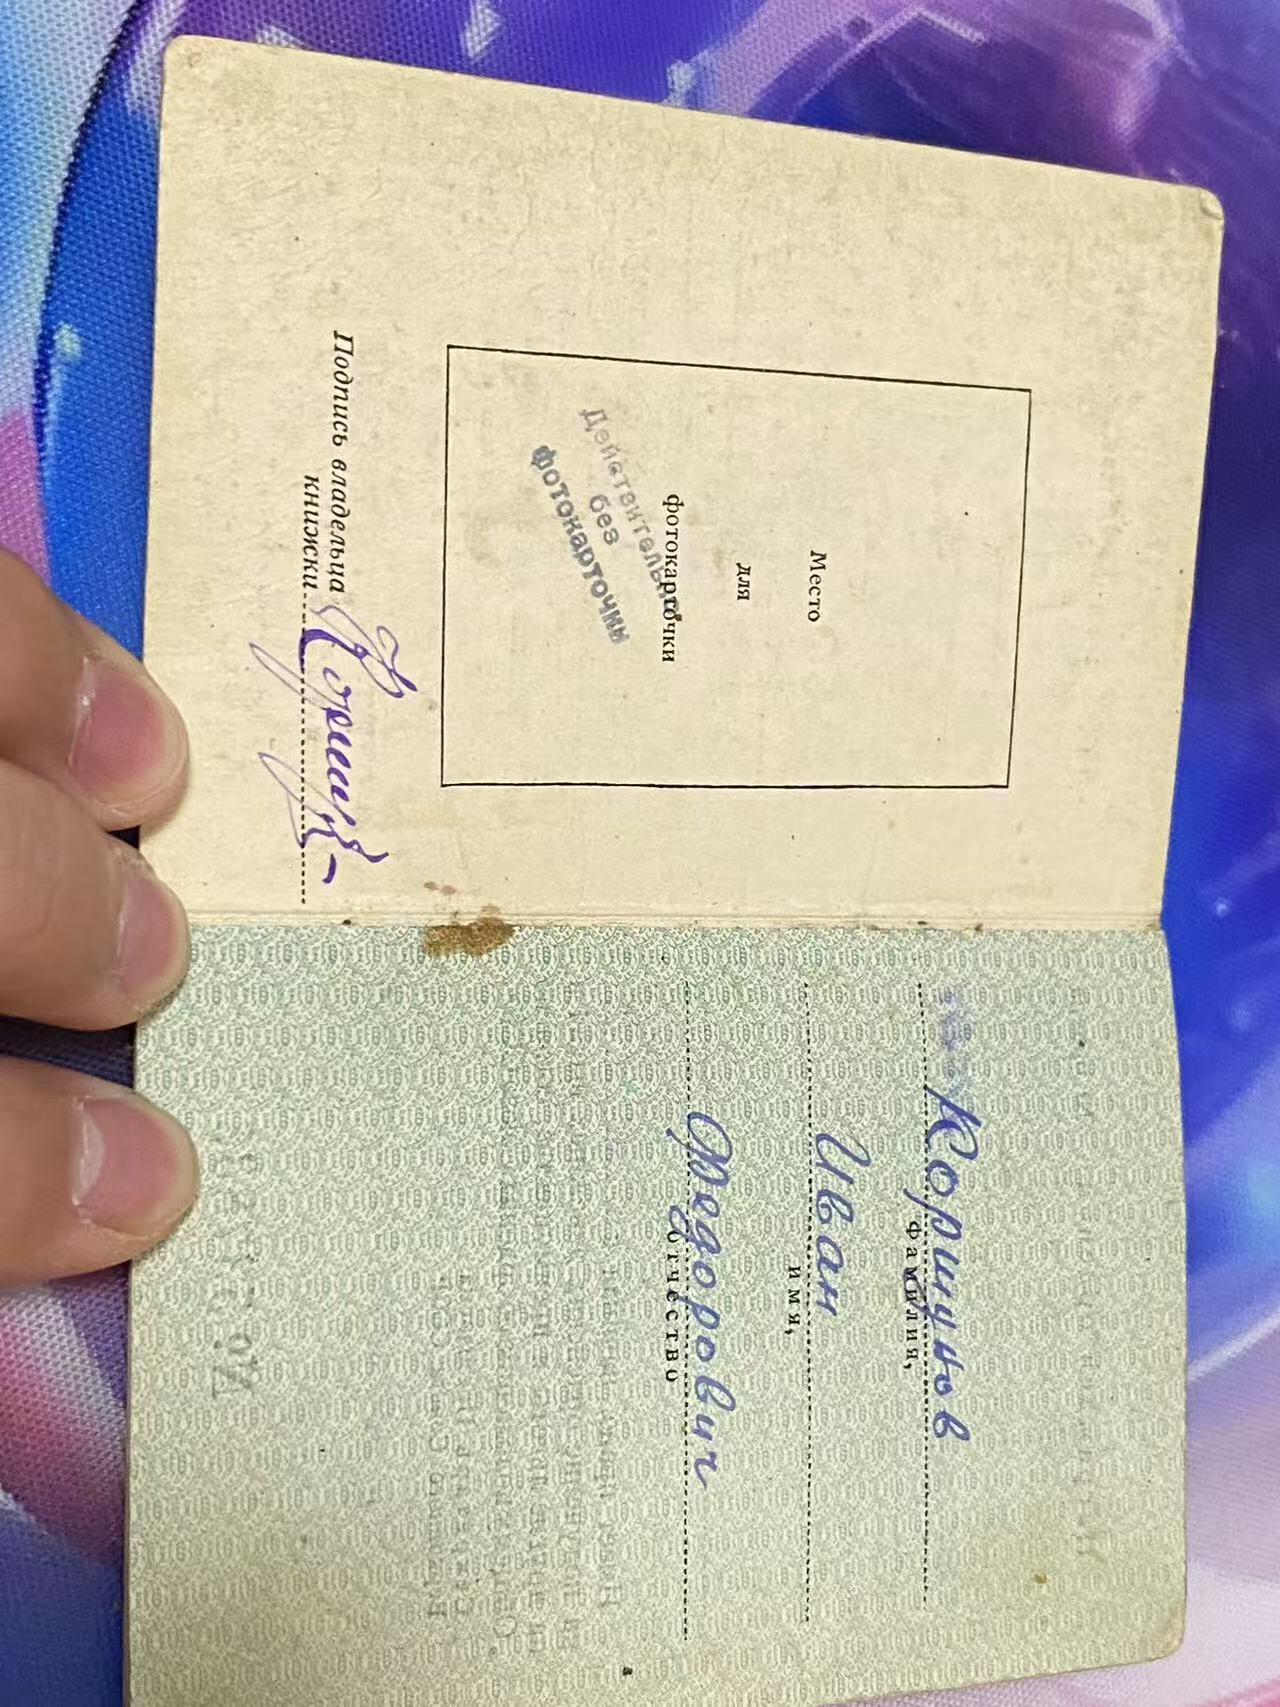 Место
для
фотокарточки
Действительно
без
фотокарточки
Подпись владельца
книжки
Коршунов
фамилия,
Иван
имя,
Федорович
отчество